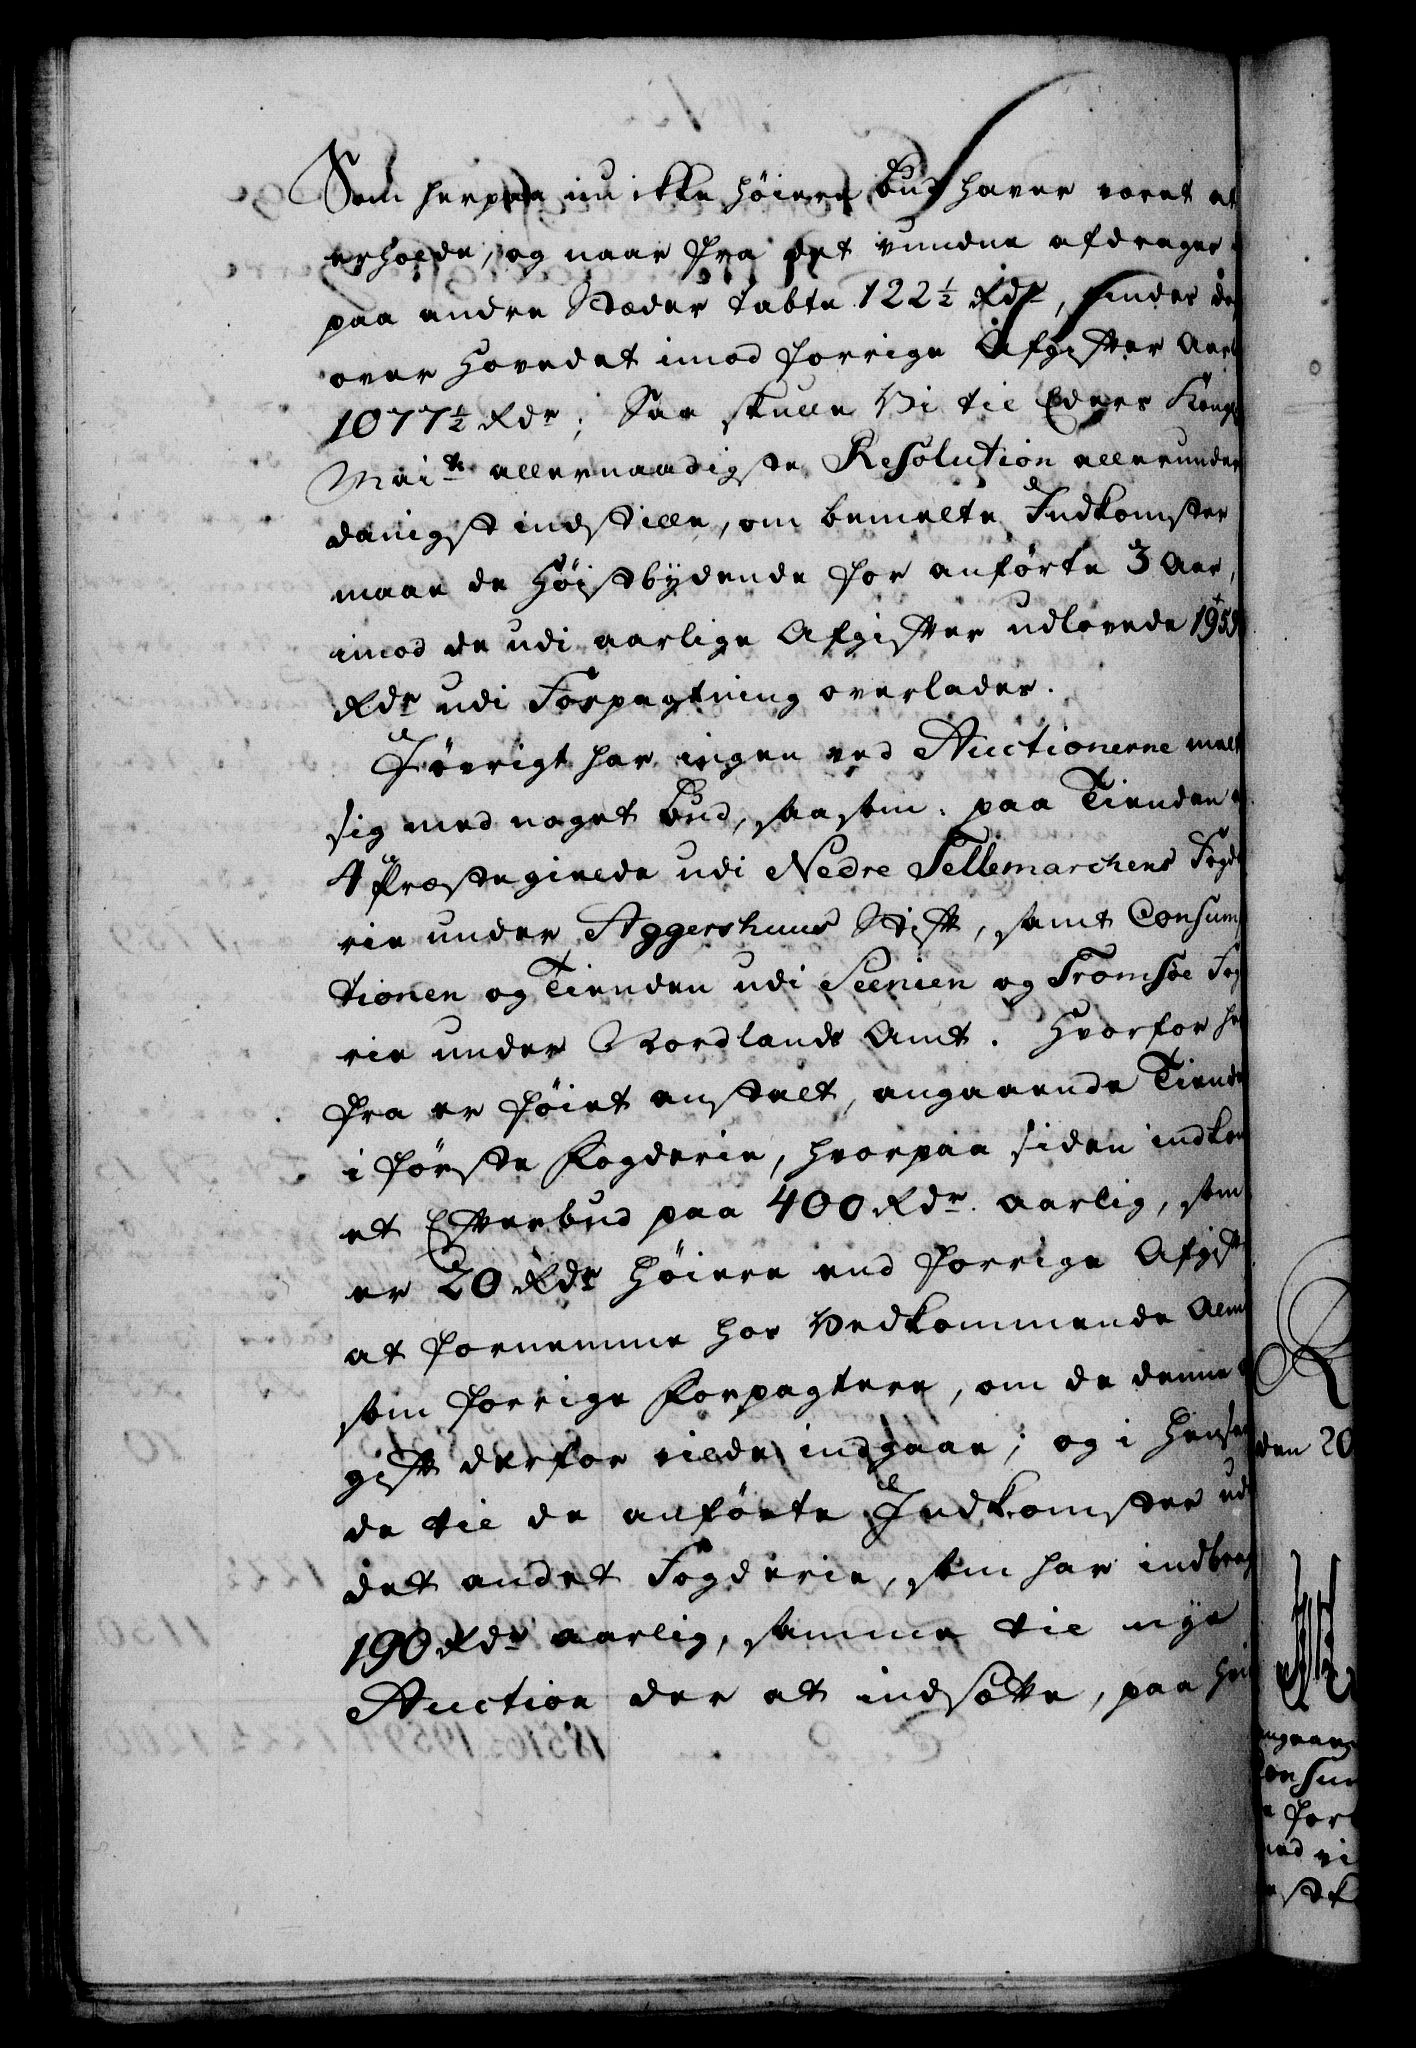 Som herpaa nu ikke høiere Bud haver været at
erholde, og naar fra det vundne afdrages
paa andre Stæder tabte 122½ Rdr, findes des
over Hovedet imod forrige Afgifter Aarl
1077½ Rdr; Saa skulle Vi til Eders Kongl
Maits allernaadigste Resolution allerunder
danigst indstille, om bemelte Indkomster
maae de Høistbydende for anførte 3 Aar,
imod de udi aarlige Afgifter udlovede 1959
Rdr udi Forpagtning overlades.
Jøvrigt har ingen ved Auctionerne meldt
sig med noget Bud, saasom: paa Tienden
4 Præstegields udi Nedre Tellemarchens Fogde
rie under Aggershuus Stift, samt Consum
tionen og Tienden udi Seenien og Tromsøe Fog
rie under Nordlands Amt. Hvorfor her
fra er føiet anstalt, angaaende Tienden
i første Fogderie, hvorpaa siden indkom
et Efterbud paa 400 Rdr. aarlig, som
er 20 Rdr høiere end forrige Afgift
at fornemme hos Vedkommende Alm
som forrige Forpagtere, om de denne
gift derfor vilde indgaae; og i Henseen
de til de anførte Indkomster ud
det andet Fogderie, som har indbragt
190 Rdr aarlig, samme til nye
Auction der at indsætte, paa
den 20